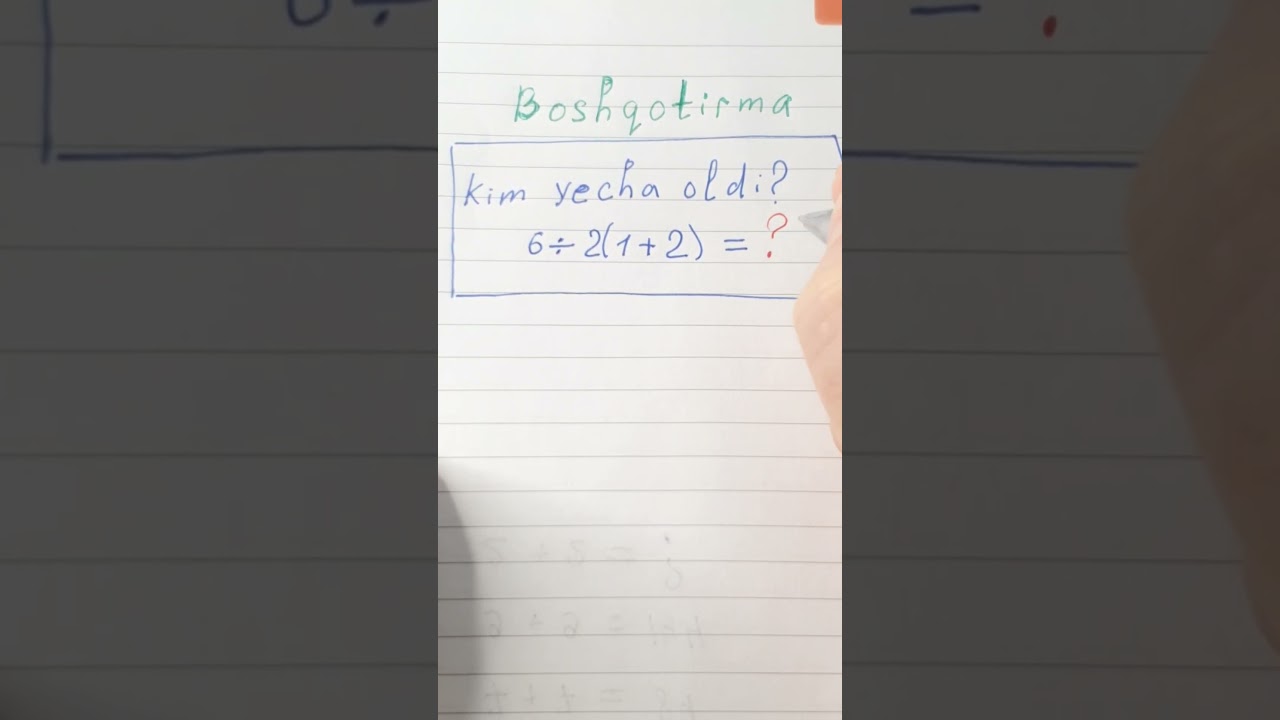 Boshqotirma
kim yecha oldi?
6÷2(1+2) = ?